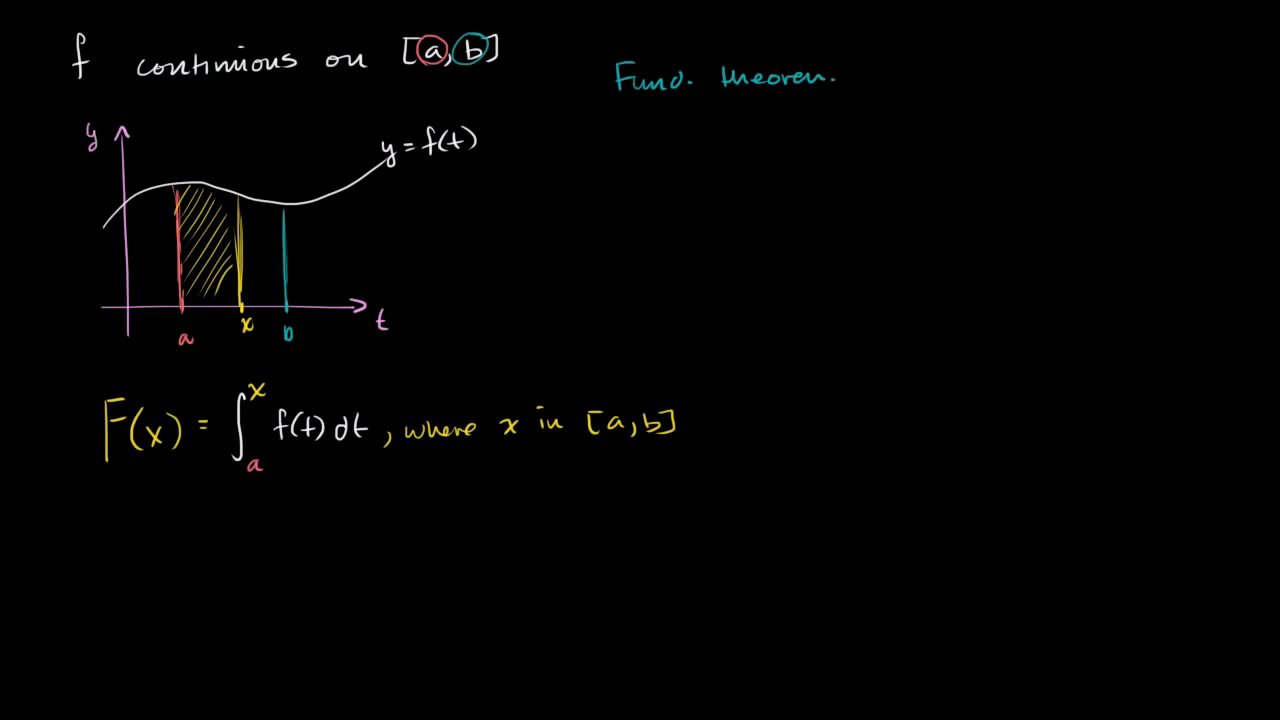 f continuous on [a, b]
Fund. theorem.
y
y = f(t)
a
x
b
t
F(x) = ∫ₐˣ f(t) dt, where x in [a, b]